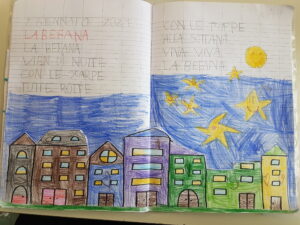 LA BEFANA
LA BEFANA
VIEN DI NOTTE
CON LE SCARPE
TUTTE ROTTE
CON LE TOPPE
ALLA SOTTANA
VIVA VIVA
LA BEFANA